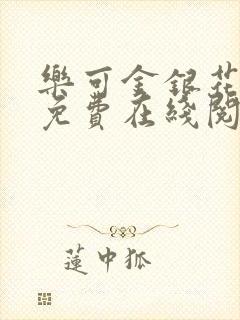 樂可金銀花
免費在綫閱
蓮中狐